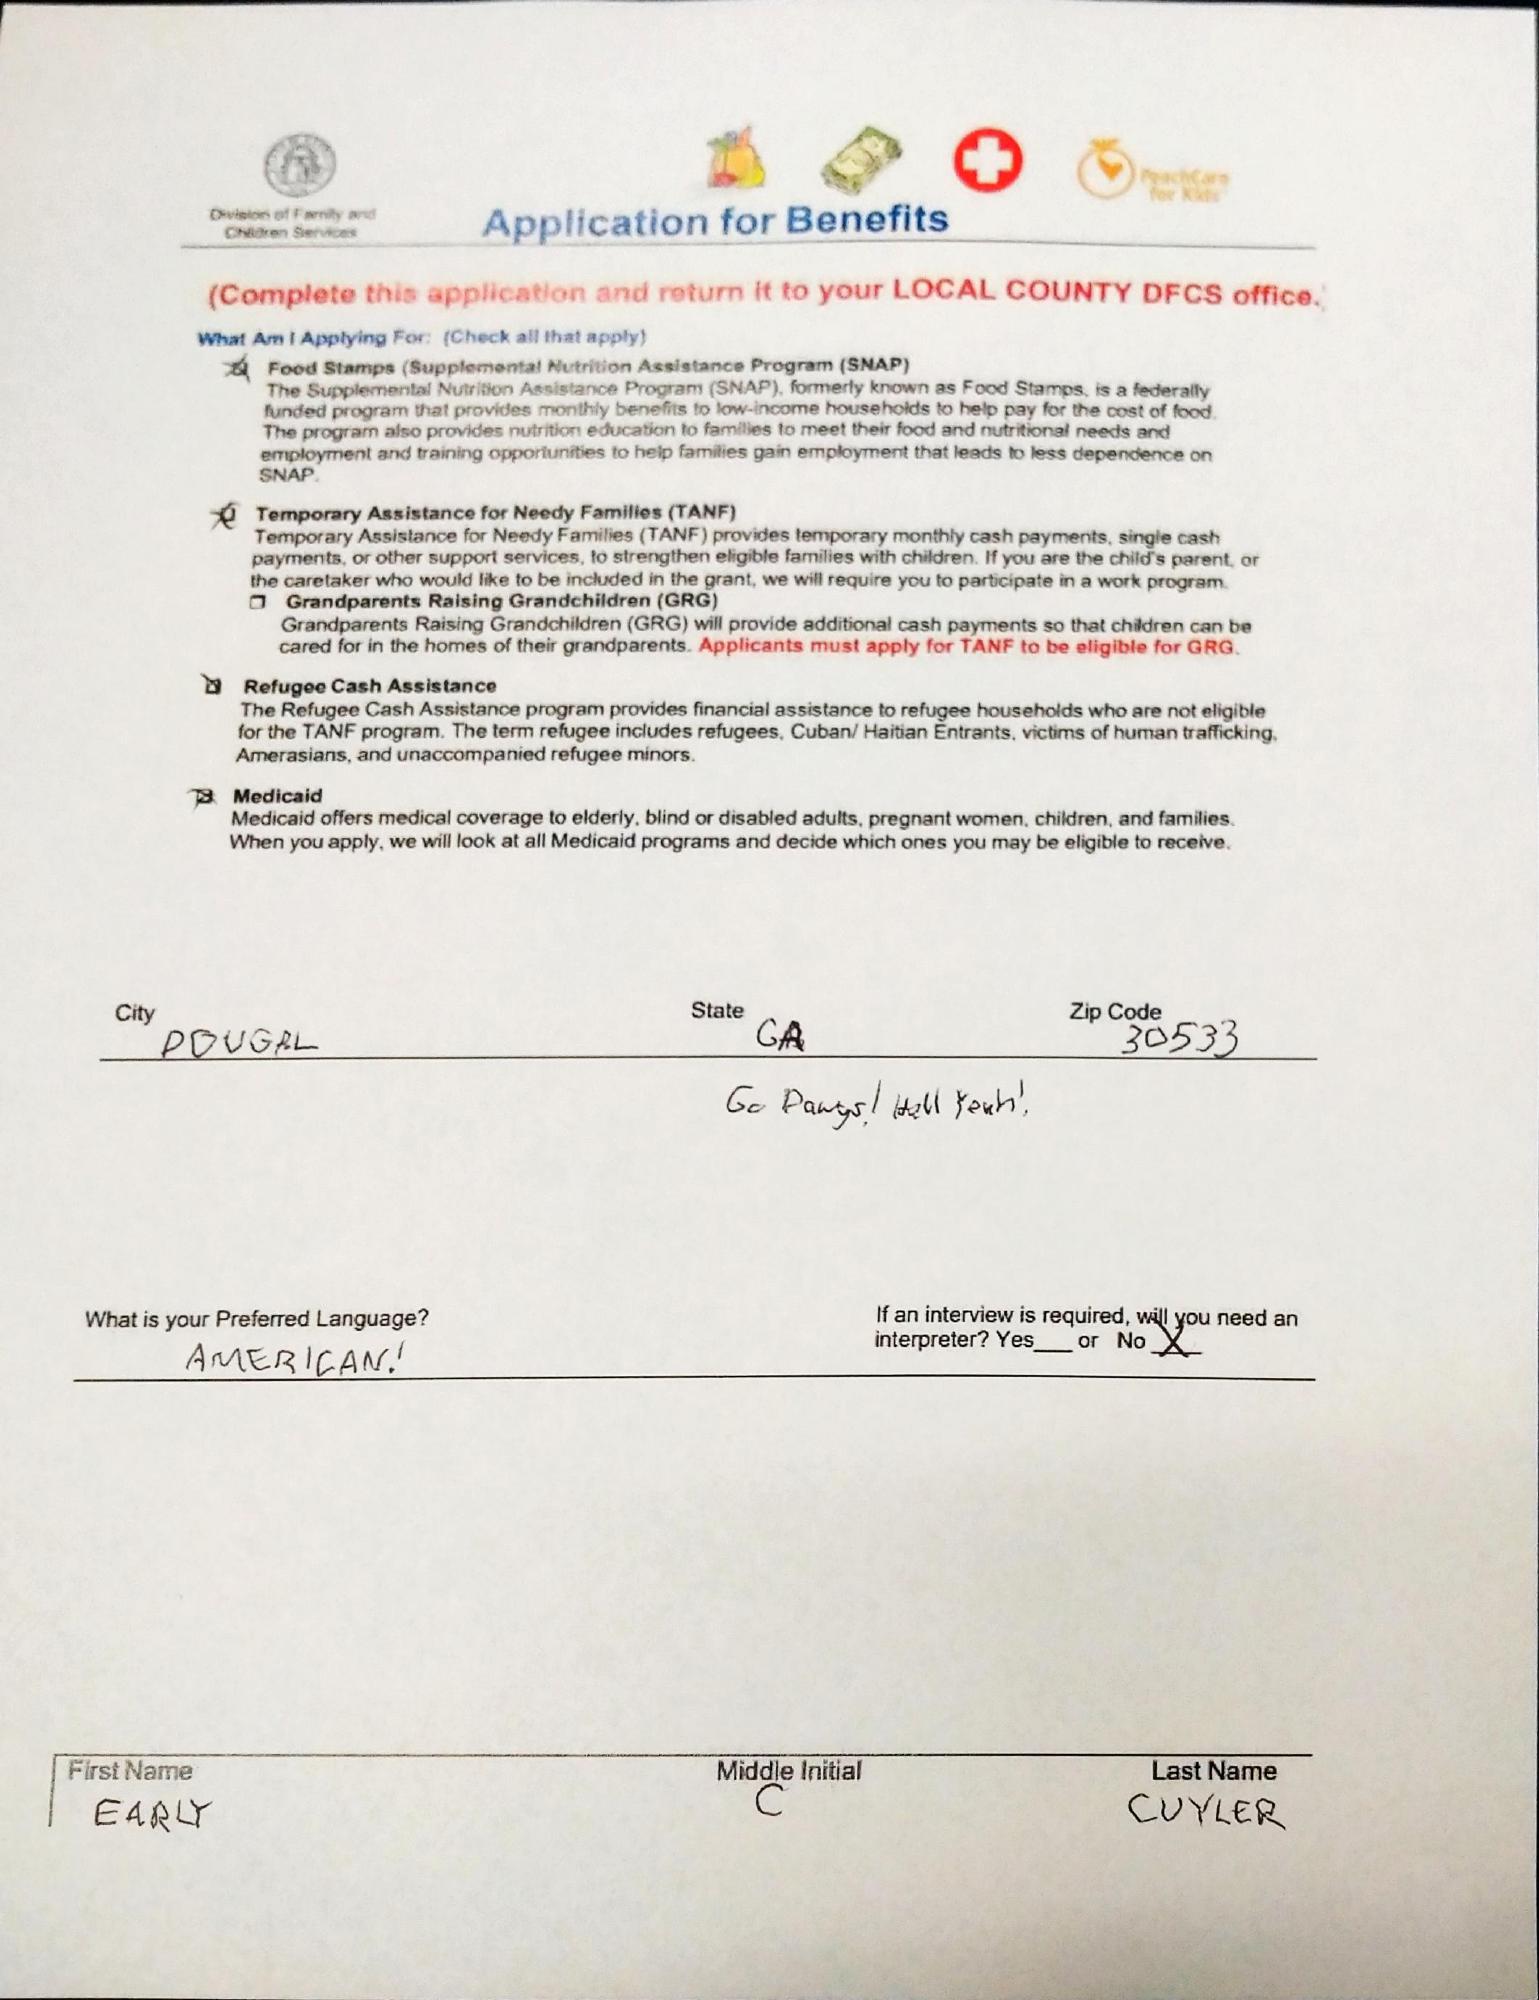 Division of Family and
Children Services
PeachCare
for Kids
Application for Benefits
(Complete this application and return it to your LOCAL COUNTY DFCS office.)
What Am I Applying For: (Check all that apply)
Food Stamps (Supplemental Nutrition Assistance Program (SNAP)
The Supplemental Nutrition Assistance Program (SNAP), formerly known as Food Stamps, is a federally
funded program that provides monthly benefits to low-income households to help pay for the cost of food.
The program also provides nutrition education to families to meet their food and nutritional needs and
employment and training opportunities to help families gain employment that leads to less dependence on
SNAP.
Temporary Assistance for Needy Families (TANF)
Temporary Assistance for Needy Families (TANF) provides temporary monthly cash payments, single cash
payments, or other support services, to strengthen eligible families with children. If you are the child's parent, or
the caretaker who would like to be included in the grant, we will require you to participate in a work program.
Grandparents Raising Grandchildren (GRG)
Grandparents Raising Grandchildren (GRG) will provide additional cash payments so that children can be
cared for in the homes of their grandparents. Applicants must apply for TANF to be eligible for GRG.
Refugee Cash Assistance
The Refugee Cash Assistance program provides financial assistance to refugee households who are not eligible
for the TANF program. The term refugee includes refugees, Cuban/ Haitian Entrants, victims of human trafficking,
Amerasians, and unaccompanied refugee minors.
Medicaid
Medicaid offers medical coverage to elderly, blind or disabled adults, pregnant women, children, and families.
When you apply, we will look at all Medicaid programs and decide which ones you may be eligible to receive.
City State Zip Code
DOUGAL GA 30533
Go Dawgs! Hell Yeah!
What is your Preferred Language? If an interview is required, will you need an
interpreter? Yes___ or No X
AMERICAN!
First Name Middle Initial Last Name
EARLY C CUYLER